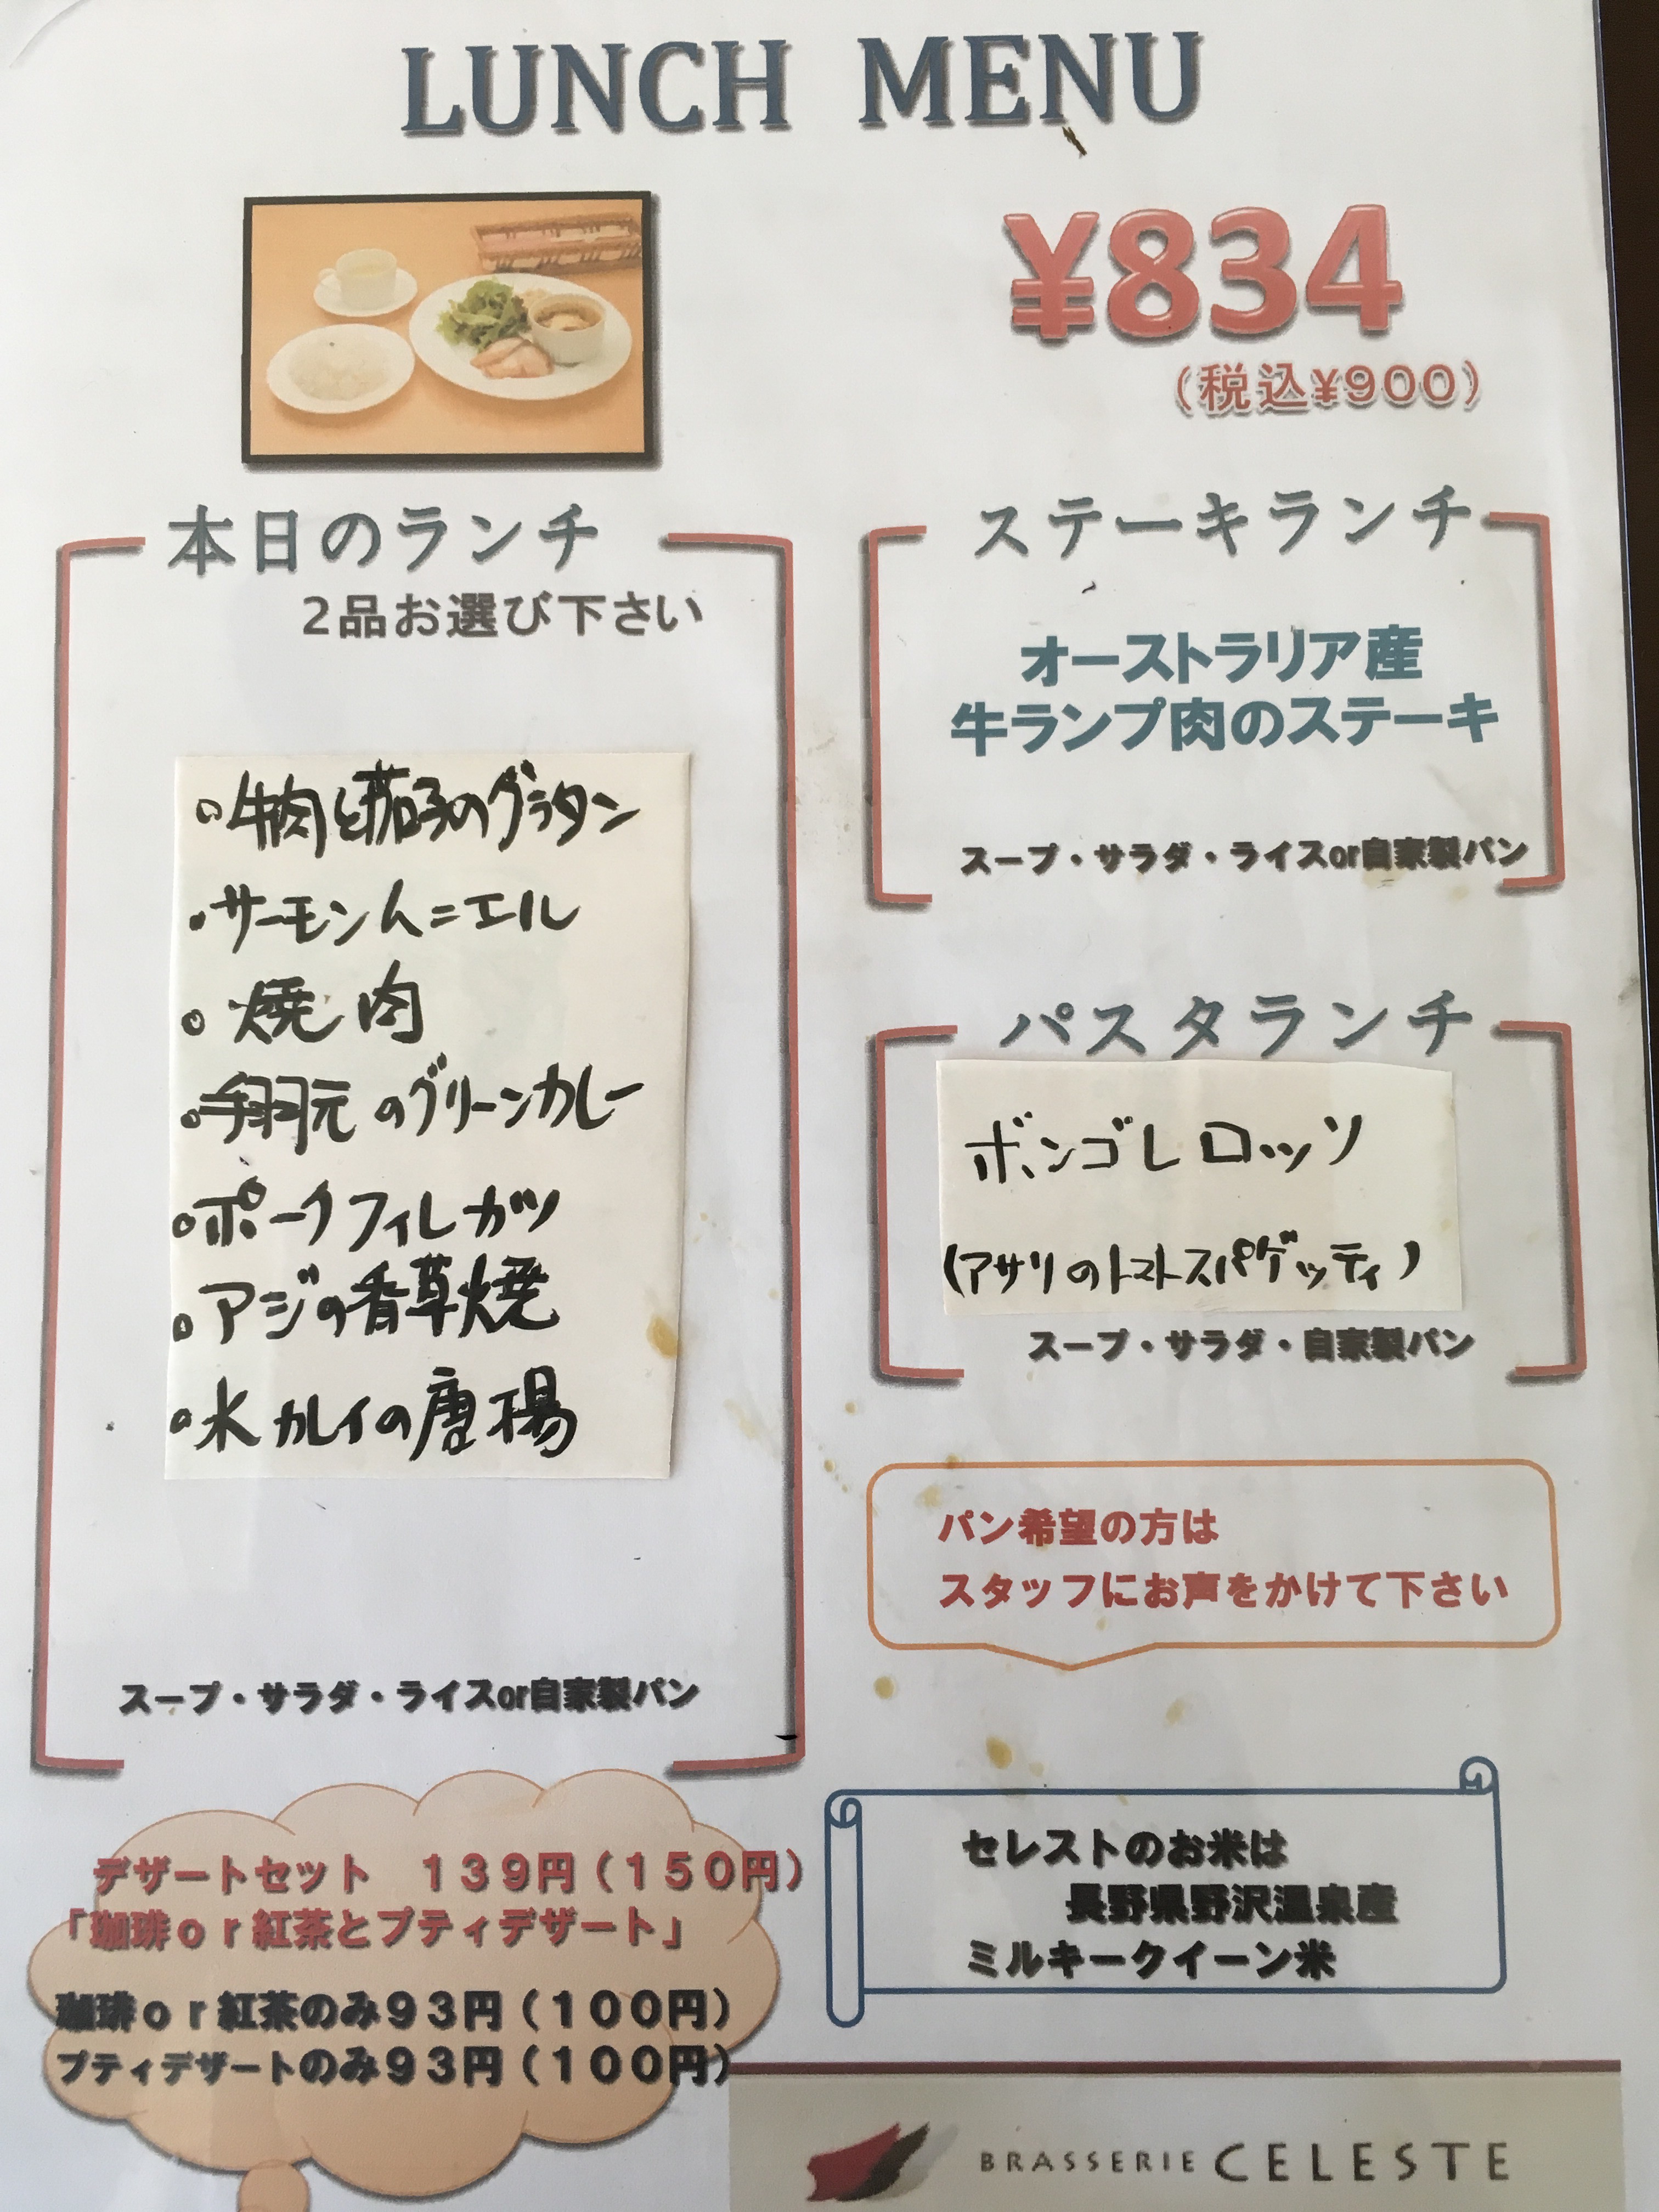 LUNCH MENU
¥834
(税込¥900)
本日のランチ
2品お選び下さい
牛肉と茄子のグラタン
サーモンムニエル
焼肉
手羽元のグリーンカレー
ポークフィレカツ
アジの香草焼
水カレイの唐揚
スープ・サラダ・ライスor自家製パン
ステーキランチ
オーストラリア産
牛ランプ肉のステーキ
スープ・サラダ・ライスor自家製パン
パスタランチ
ボンゴレロッソ
(アサリのトマトスパゲッティ)
スープ・サラダ・自家製パン
パン希望の方は
スタッフにお声をかけて下さい
デザートセット 139円(150円)
「珈琲or紅茶とプティデザート」
珈琲or紅茶のみ93円(100円)
プティデザートのみ93円(100円)
セレストのお米は
長野県野沢温泉産
ミルキークイーン米
BRASSERIE CELESTE